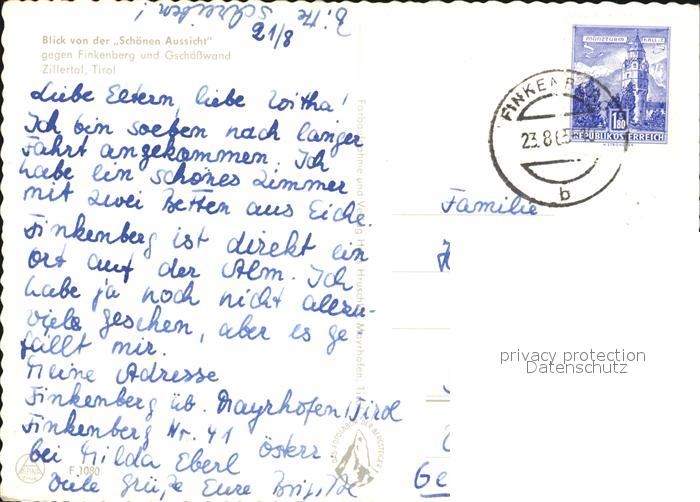 Bitte
schreiben!
21/8
Blick von der „Schönen Aussicht"
gegen Finkenberg und Gschößwand
Zillertal, Tirol
Liebe Eltern, liebe Witha!
Ich bin soeben nach langer
Fahrt angekommen. Ich
habe ein schönes Zimmer
mit zwei Betten aus Eiche.
Finkenberg ist direkt ein
Ort auf der Alm. Ich
habe ja noch nicht allzu-
viele gesehen, aber es ge
fällt mir.
Meine Adresse
Finkenberg üb. Mayrhofen/Tirol
Finkenberg Nr. 41
Österr
bei Hilda Eberl
Viele Grüße Eure Brigitte
F 1080
MÜNZTURM HALL i. T.
1.80
REPUBLIK ÖSTERREICH
FINKENBERG
23.8.65
b
Familie
Ge
privacy protection
Datenschutz